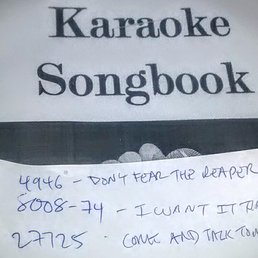 Karaoke
Songbook
4946 - DON'T FEAR THE REAPER
8008-74 - I WANT IT THA
27725 - COME AND TALK TO M